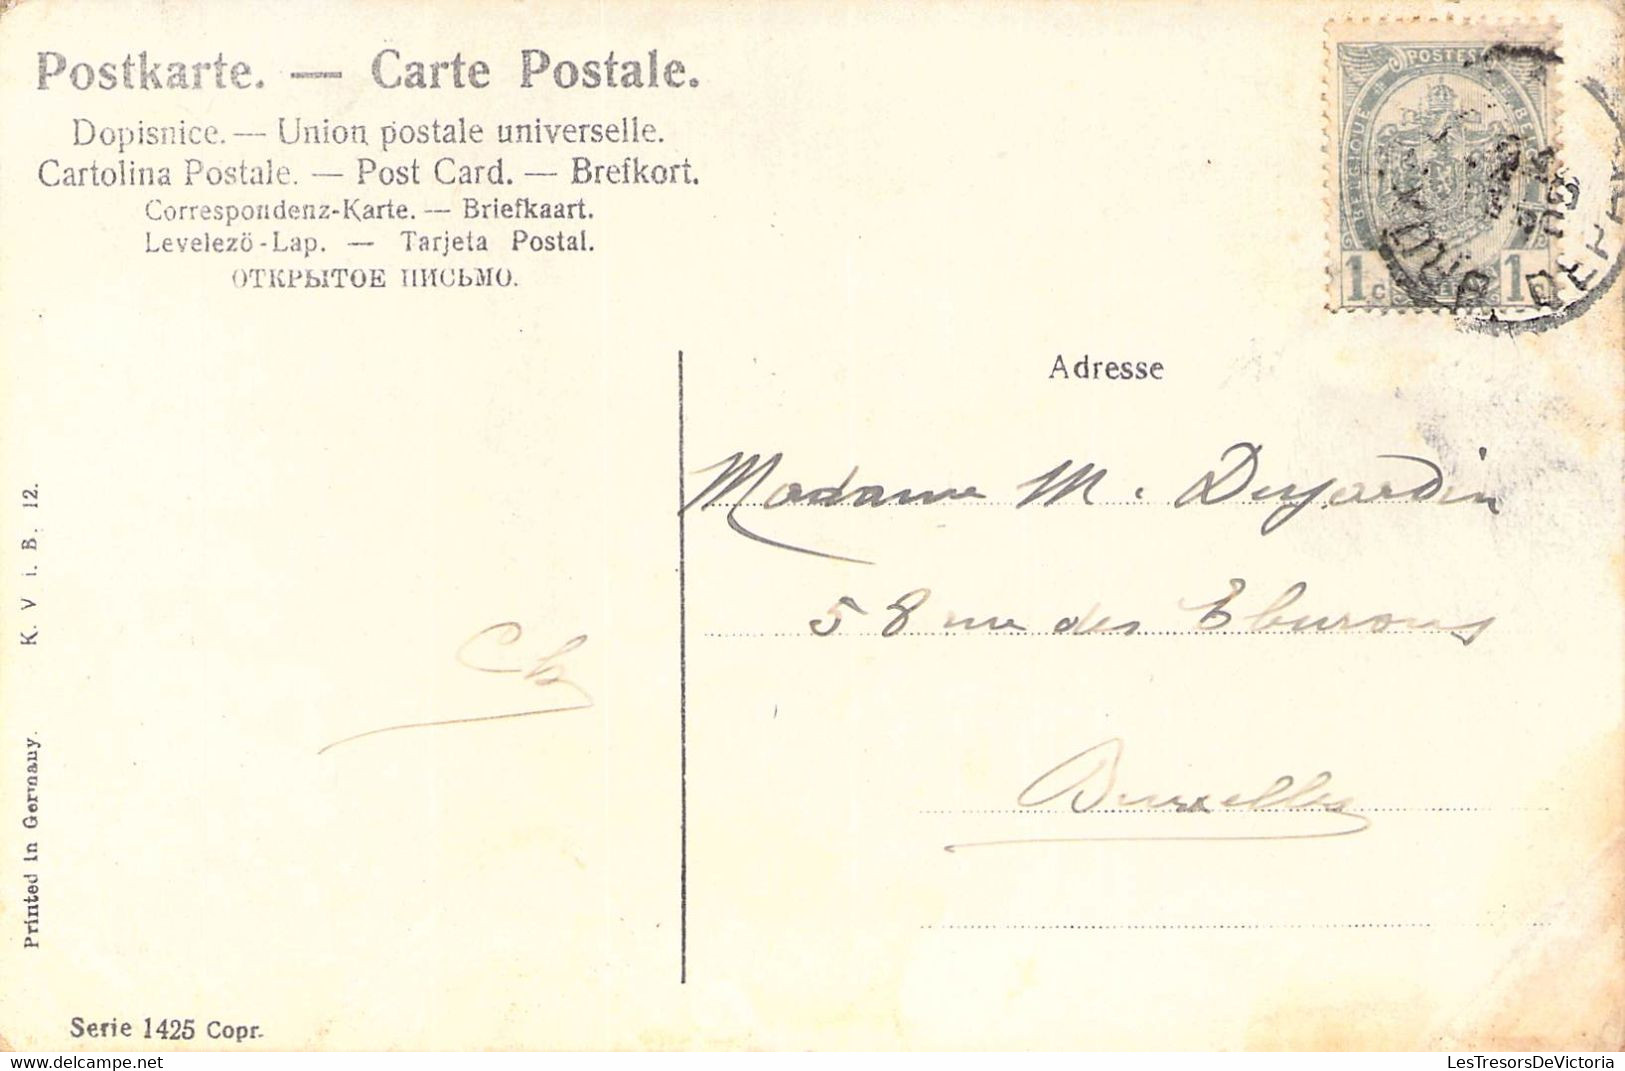 Postkarte. — Carte Postale.
Dopisnice. — Union postale universelle.
Cartolina Postale. — Post Card. — Brefkort.
Correspondenz-Karte. — Briefkaart.
Levelezö-Lap. — Tarjeta Postal.
ОТКРЫТОЕ ПИСЬМО.
POSTES
BELGIQUE
1 c
1
BRUX
DEPA
Adresse
Madame M. Dujardin
58 rue des Eburons
Bruxelles
Ch
K. V i. B. 12.
Printed in Germany.
Serie 1425 Copr.
LesTresorsDeVictoria